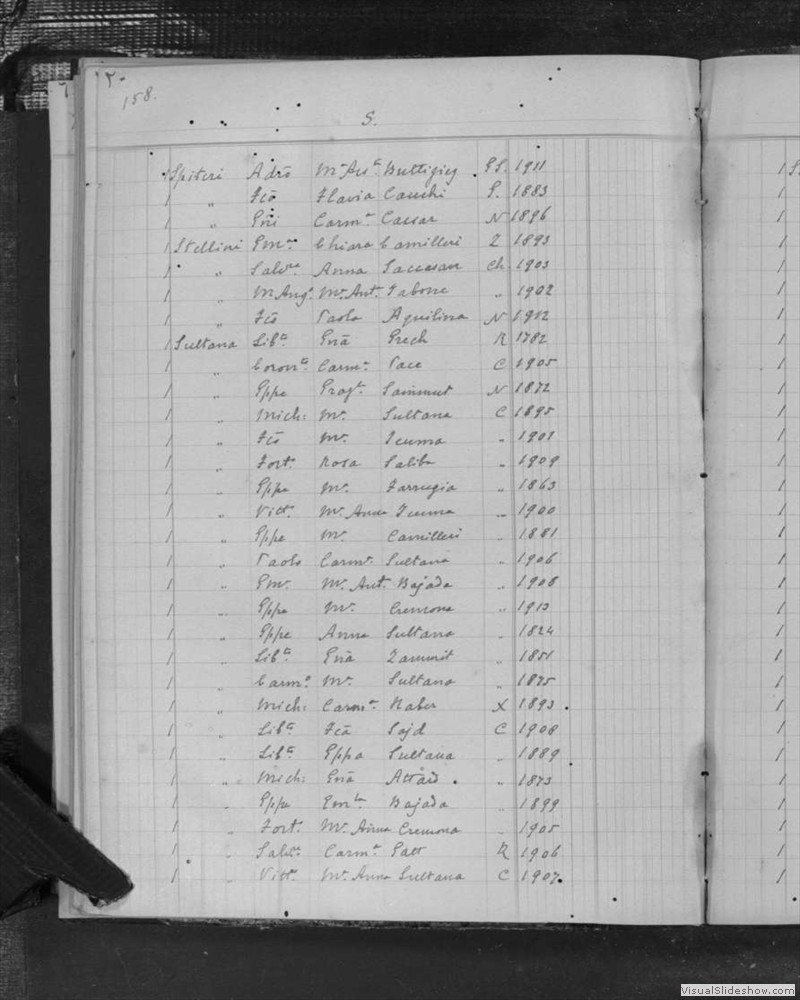 158.
S.
1 Spiteri Adrō Mª Antª Buttigieg PS. 1911
1 " Fcō Flavia Cauchi P. 1883
1 " Gni Carmª Cassar N 1896
1 Stellini Emⁿᵘ Chiara Camilleri Z 1893
1 " Salvʳᵃ Anna Ch. 1903
1 " M. Angº Mª Antª Tabone " 1902
1 " Fcō Paola Aquilina N 1912
1 Sultana Libᵗᵃ Gnā Grech R 1782
1 " Coronᵗᵃ Carmª Pace C 1905
1 " Gppe Gragª Sammut N 1872
1 " Mich: Mª Sultana C 1895
1 " Fcō Mª Icuma " 1901
1 " Fortª Rosa Saliba " 1909
1 " Gppa Mª Farrugia " 1863
1 " Vittª Mª Anna Icuma " 1900
1 " Gppe Mª Camilleri " 1881
1 " Paolo Carmª Sultana " 1906
1 " Emª Mª Antª Bajada " 1908
1 " Gppa Mª Cremona " 1913
1 " Gppe Anna Sultana " 1824
1 " Libᵗᵃ Gnā Zammit " 1851
1 " Carmº Mª Sultana " 1875
1 " Mich: Carmª Naber X 1893
1 " Libᵗᵃ Fcā Sajd C 1908
1 " Libᵗᵃ Gppa Sultana " 1889
1 " Mich: Gnā Attard " 1873
1 " Gppe Emᵗᵃ Bajada " 1899
1 " Fortª Mª Anna Cremona " 1905
1 " Salvª Carmª Gatt R 1906
1 " Vittª Mª Anna Sultana C 1907
VisualSlideshow.com